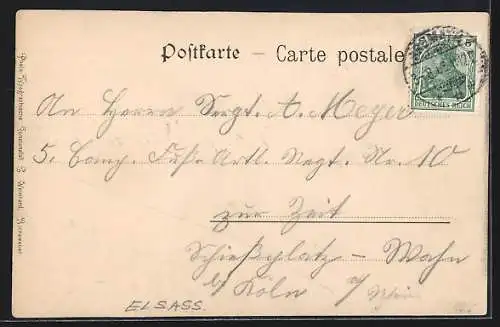 Postkarte – Carte postale
5
DEUTSCHES REICH
An Herrn Sergt. A. Meyer
5. Comp. Fuß-Artl. Regt. Nr. 10
zur Zeit
Schießplatz – Wahn
b/ Köln a/ Rhein
ELSASS.